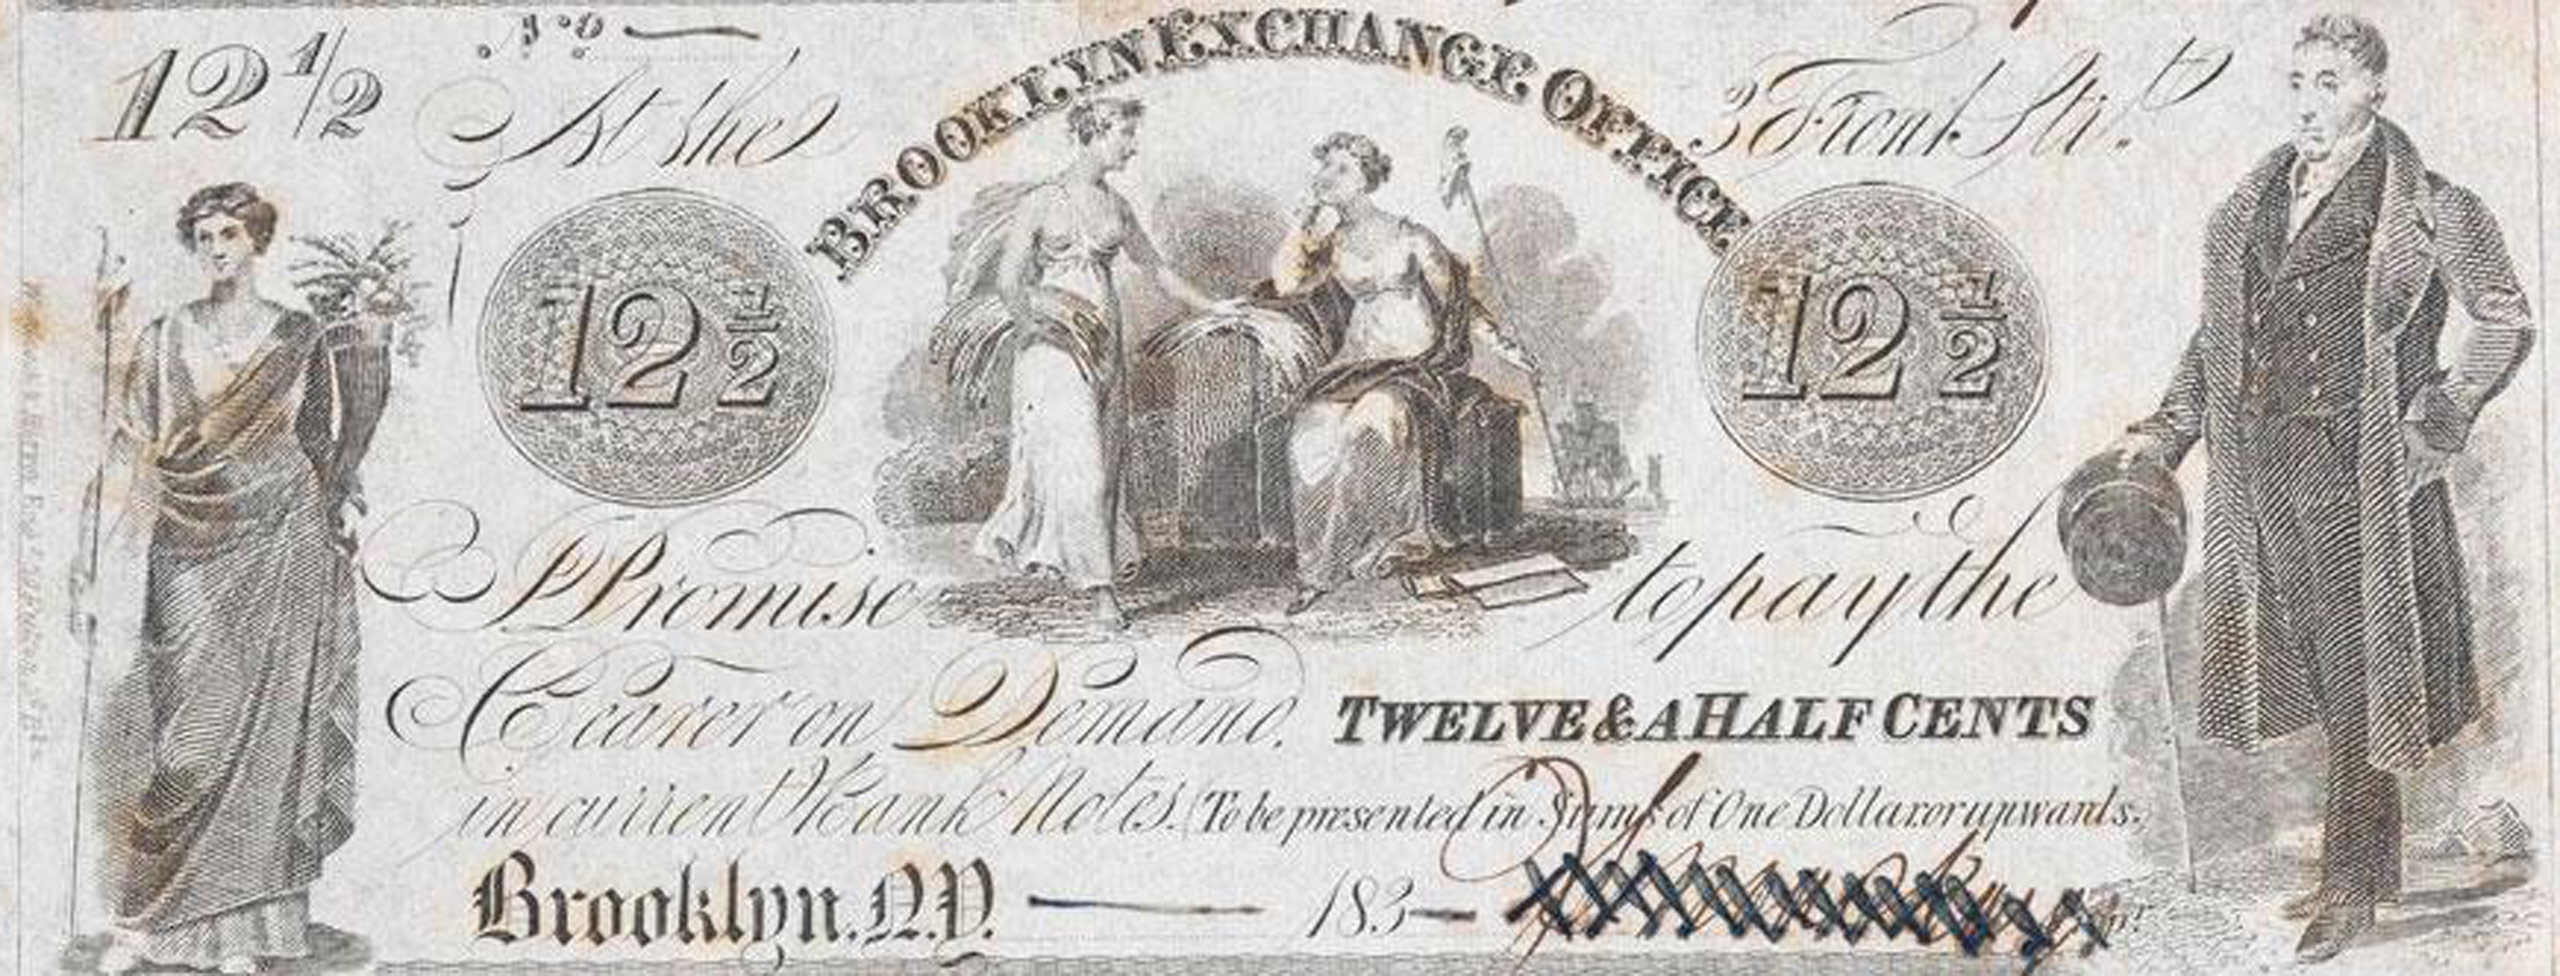 12 1/2 No At the BROOKLYN EXCHANGE OFFICE 3 Front Str.t
12 1/2 12 1/2
I Promise to pay the
Bearer on Demand, TWELVE & A HALF CENTS
in current Bank Notes. (To be presented in Sums of One Dollar or upwards.
Brooklyn. N.Y. 183